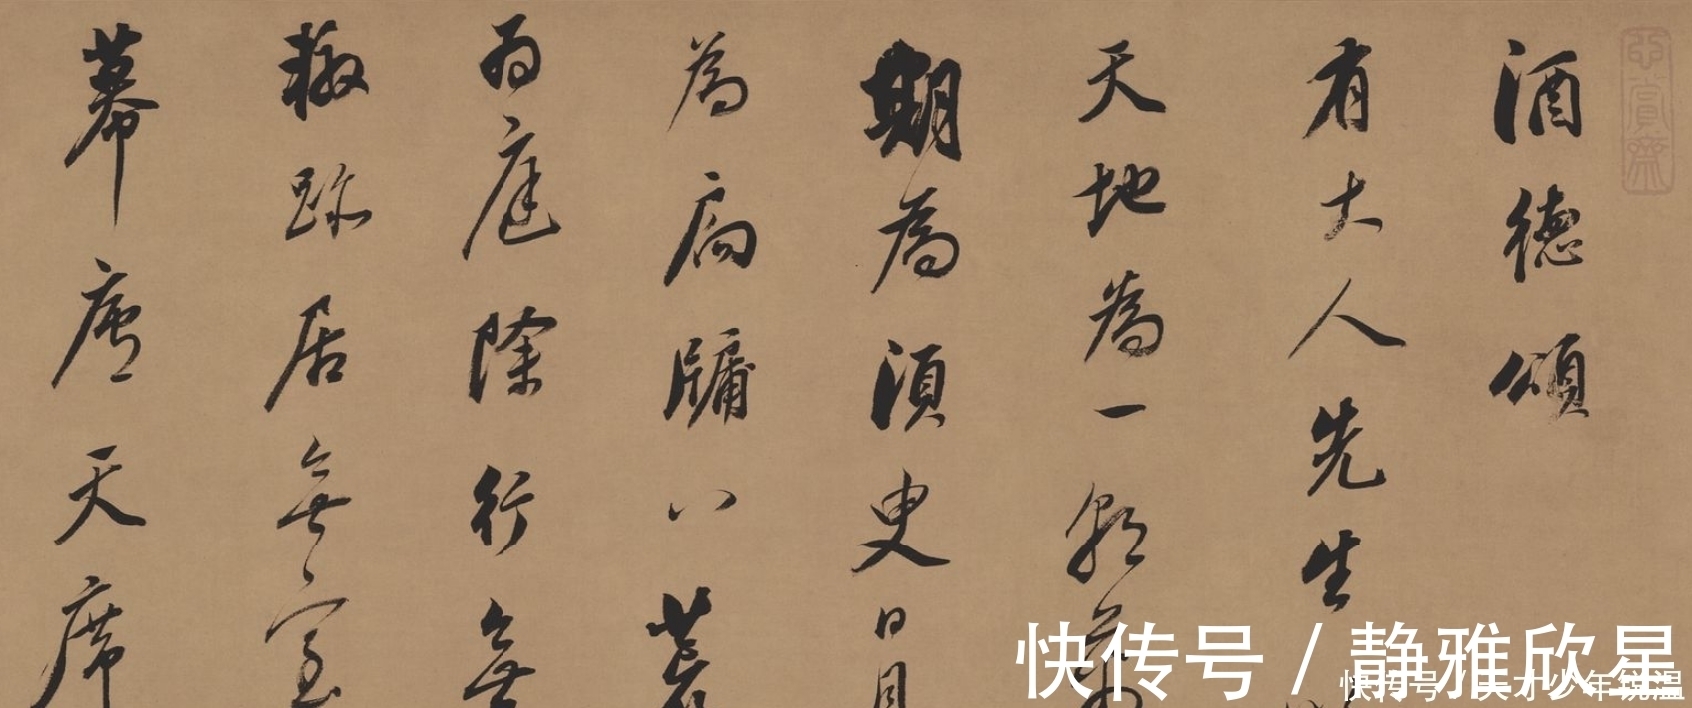 酒德頌
有大人先生以
天地為一朝萬
期為須臾日月
為扃牖八荒
為庭除行無
轍跡居無室
幕席天
快传号 / 静雅欣星
快传号 / 天才少年说温